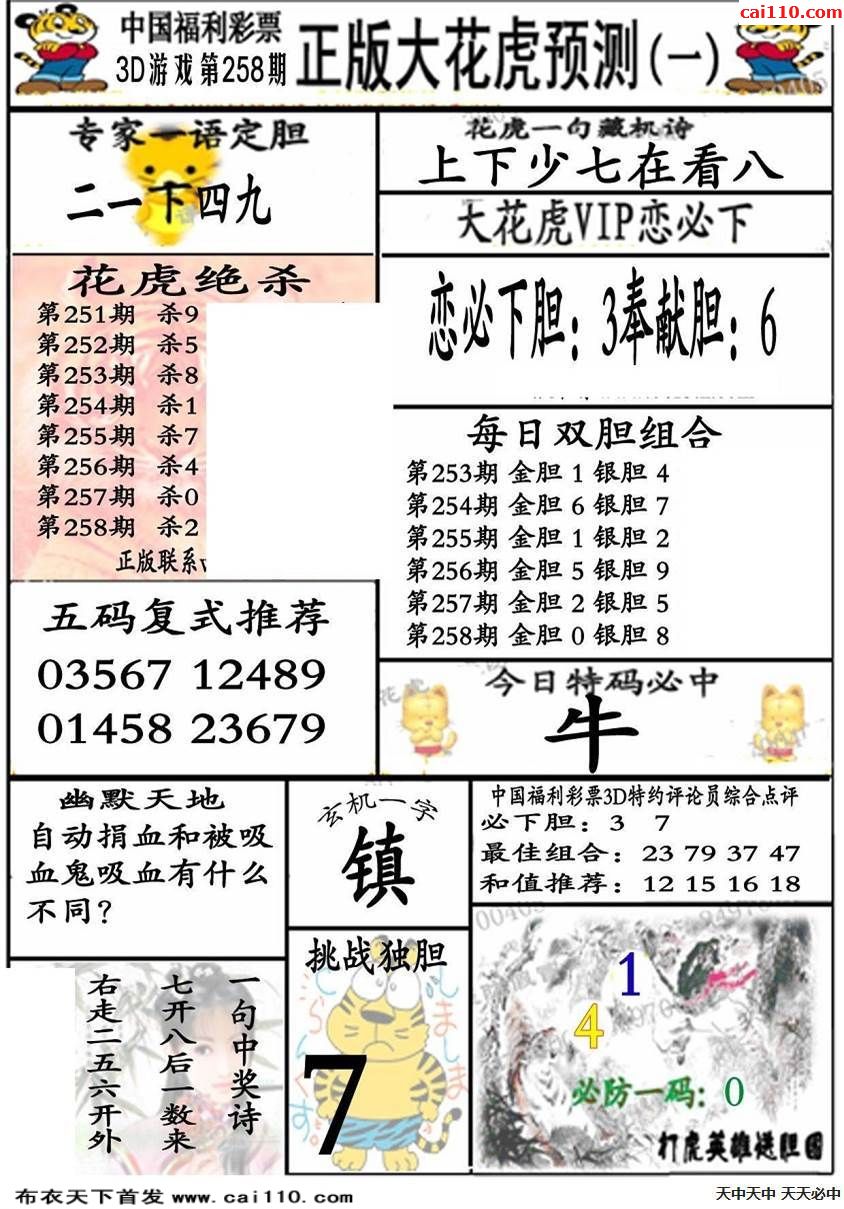 cai110.com
中国福利彩票
3D游戏第258期
正版大花虎预测(一)
专家一语定胆
二一下四九
花虎一句藏机诗
上下少七在看八
大花虎VIP恋必下
恋必下胆：3奉献胆：6
花虎绝杀
第251期 杀9
第252期 杀5
第253期 杀8
第254期 杀1
第255期 杀7
第256期 杀4
第257期 杀0
第258期 杀2
正版联系
每日双胆组合
第253期 金胆 1 银胆 4
第254期 金胆 6 银胆 7
第255期 金胆 1 银胆 2
第256期 金胆 5 银胆 9
第257期 金胆 2 银胆 5
第258期 金胆 0 银胆 8
五码复式推荐
03567 12489
01458 23679
花虎
今日特码必中
牛
幽默天地
自动捐血和被吸
血鬼吸血有什么
不同?
玄机一字
镇
中国福利彩票3D特约评论员综合点评
必下胆：3 7
最佳组合：23 79 37 47
和值推荐：12 15 16 18
一句中奖诗
七开八后一数来
右走二五六开外
挑战独胆
7
1
4
必防一码：0
打虎英雄送胆图
布衣天下首发 www.cai110.com
天中天中 天天必中